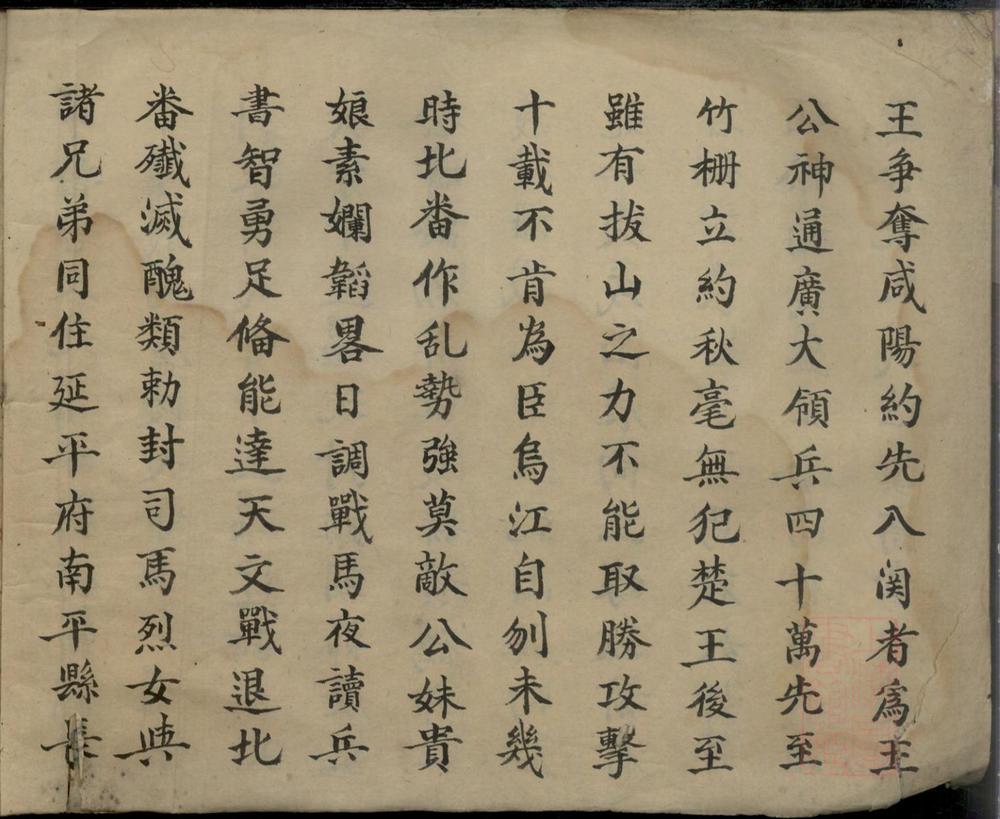 王争奪咸陽約先入関者為王
公神通廣大領兵四十萬先至
竹栅立約秋毫無犯楚王後至
雖有拔山之力不能取勝攻擊
十載不肯為臣烏江自刎未幾
時北番作乱勢強莫敵公妹貴
娘素嫻韜畧日調戰馬夜讀兵
書智勇足俻能達天文戰退北
番殲滅醜類勅封司馬烈女與
諸兄弟同住延平府南平縣長